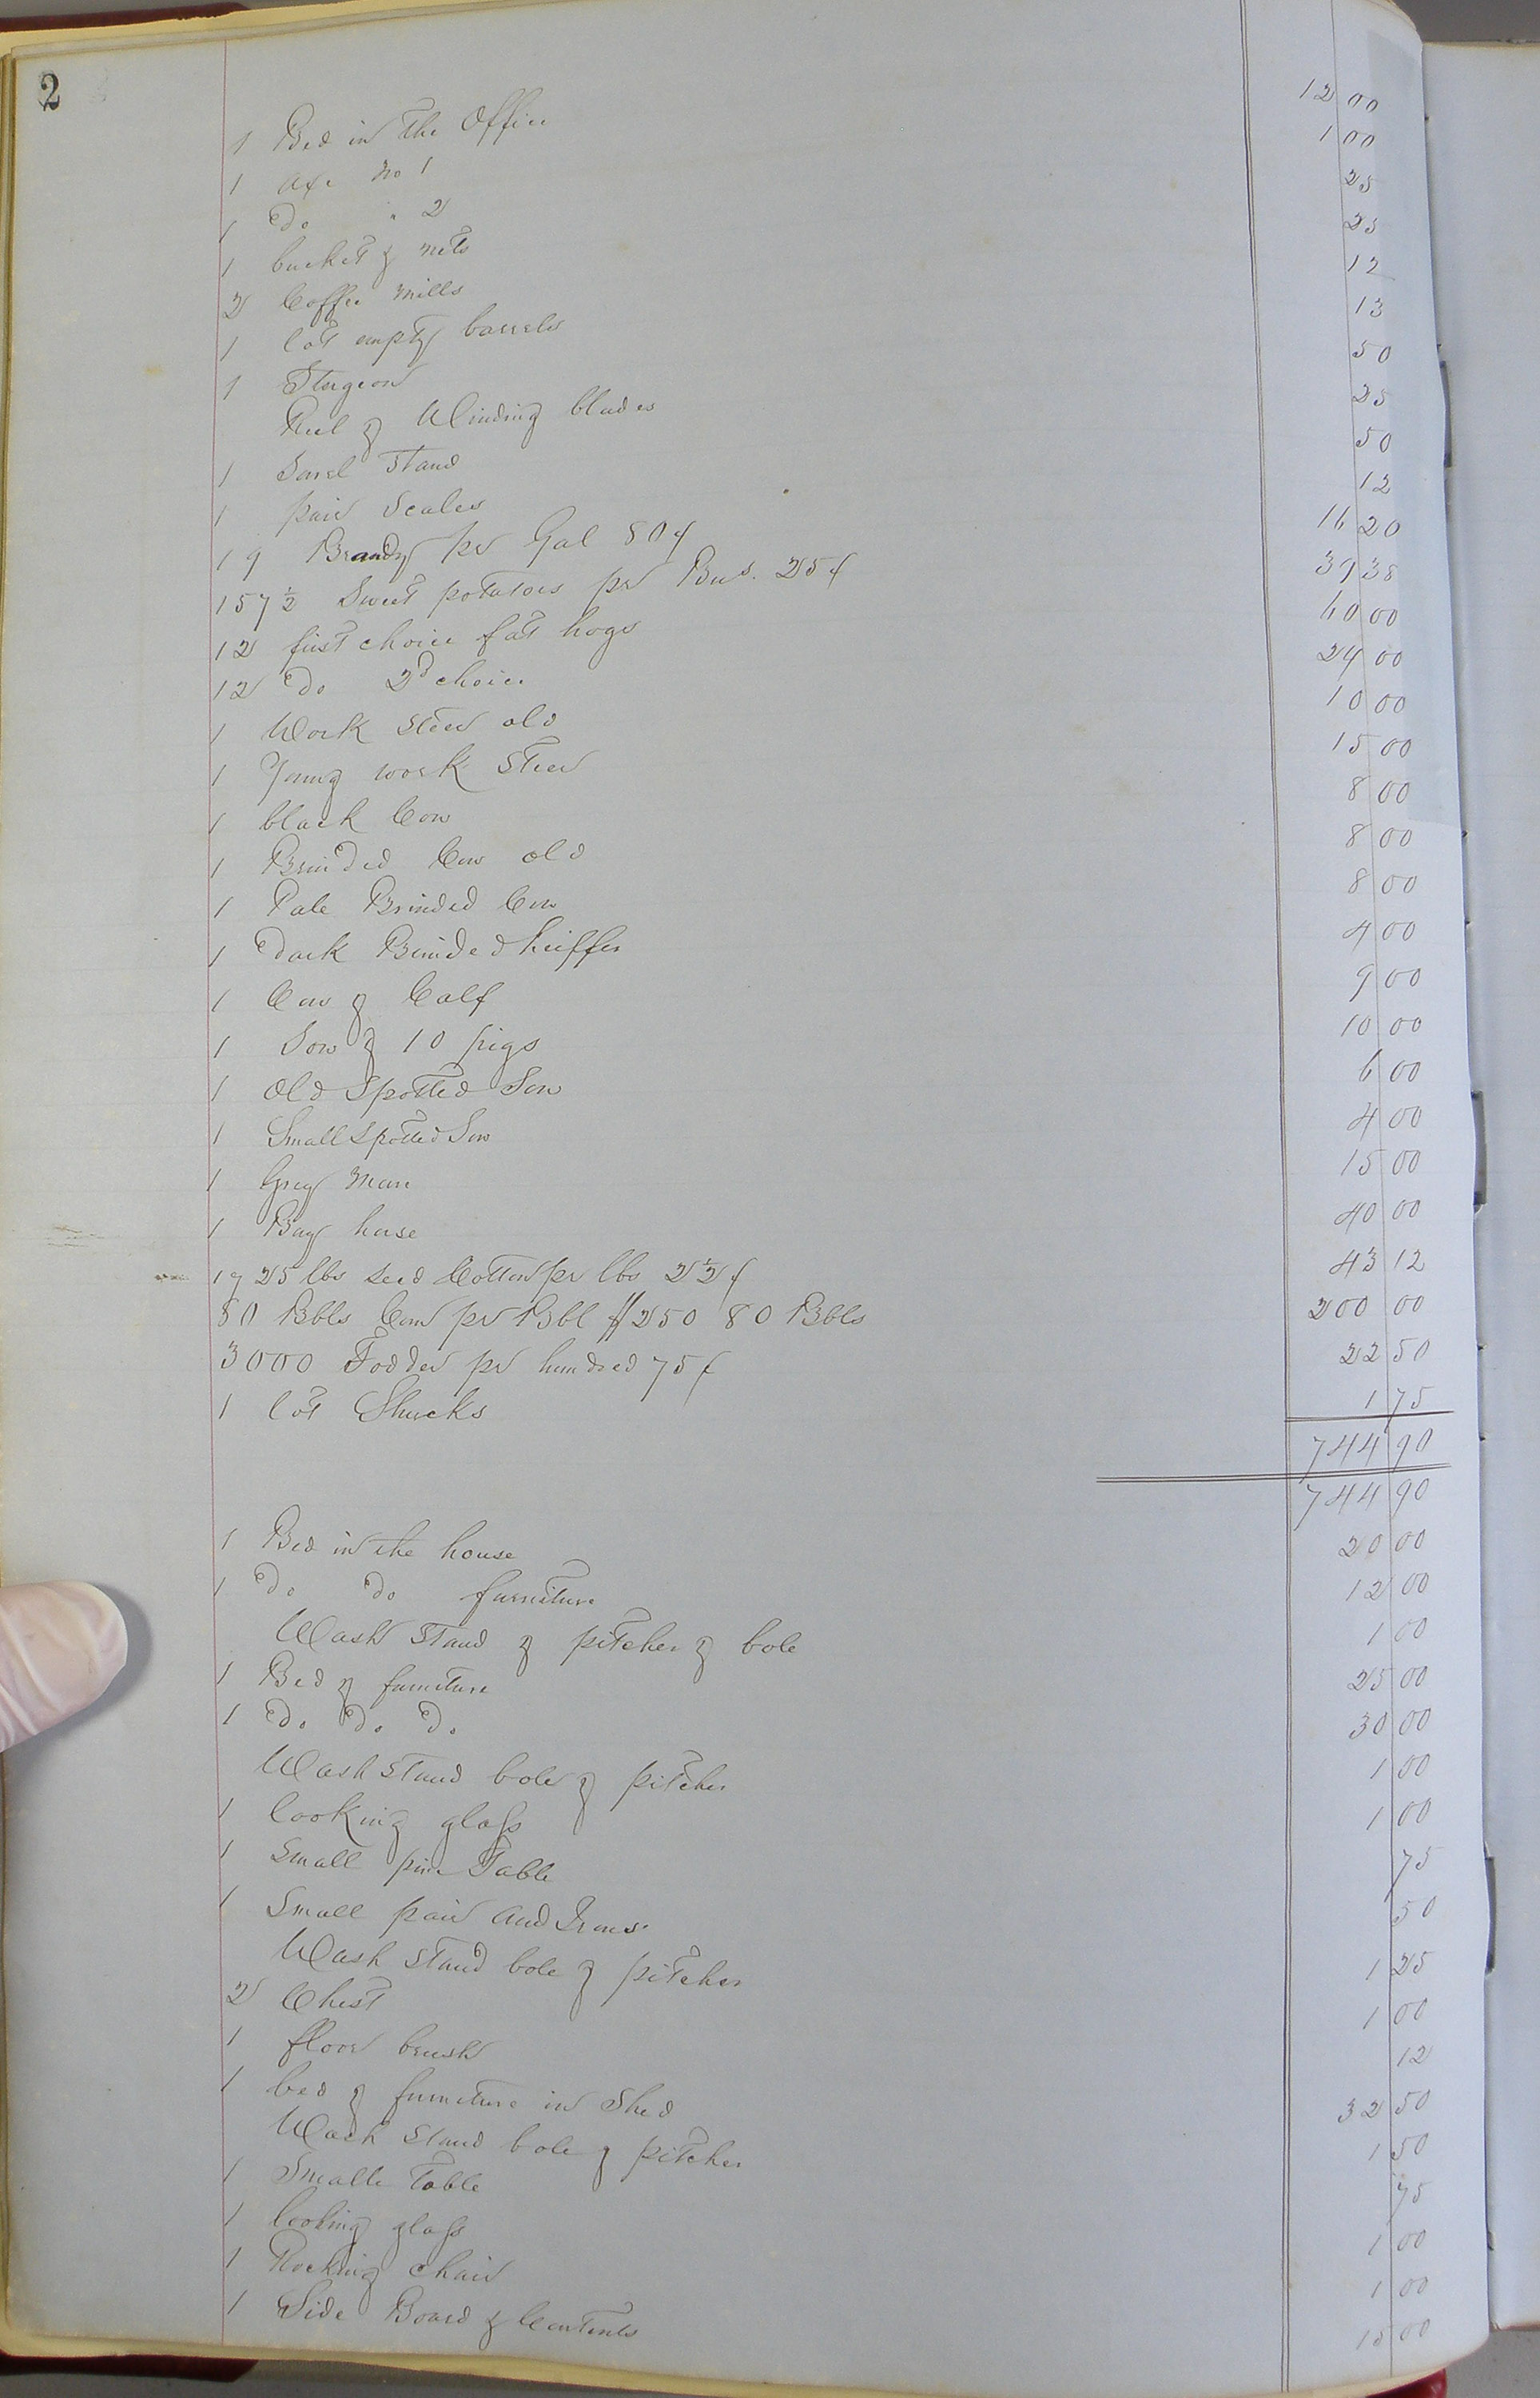 2
1 Bed in the Office 12 00
1 axe No 1 1 00
1 Do " 2 25
1 bucket & nets 25
2 Coffee mills 12
1 lot empty barrels 13
1 Sturgeon 50
Reel & Winding blades 25
1 Stand 50
1 pair Scales 12
19 Brandy pr Gal 80¢ 16 20
157 ½ Sweet potatoes pr Bus. 25¢ 39 38
12 first choice fat hogs 60 00
12 Do 2d choice 24 00
1 Work Steer old 10 00
1 Young work Steer 15 00
1 black Cow 8 00
1 Brinded Cow old 8 00
1 Pale Brinded Cow 8 00
1 Dark Brinded heiffer 4 00
1 Cow & Calf 9 00
1 Sow & 10 pigs 10 00
1 Old Spotted Sow 6 00
1 Small Spotted Sow 4 00
1 Grey Mare 15 00
1 Bay horse 40 00
1725 lbs seed Cotton pr lbs 2½¢ 43 12
80 Bbls Corn pr Bbl $2 50 80 Bbls 200 00
3000 Fodder pr hundred 75¢ 22 50
1 lot Shucks 1 75
744 90
744 90
1 Bed in the house 20 00
1 Do Do furniture 12 00
Wash Stand & pitcher & bole 1 00
1 Bed & furniture 25 00
1 Do Do Do 30 00
Wash Stand bole & pitcher 1 00
1 looking glass 1 00
1 Small pine Table 75
1 Small pair And Irons 50
Wash Stand bole & pitcher 1 25
2 Chest 1 00
1 floor brush 12
1 bed & furniture in Shed 32 50
Wash Stand bole & pitcher 1 50
1 Smalle Table 75
1 looking glass 1 00
1 Rocking Chair 1 00
1 Side Board & Contents 15 00